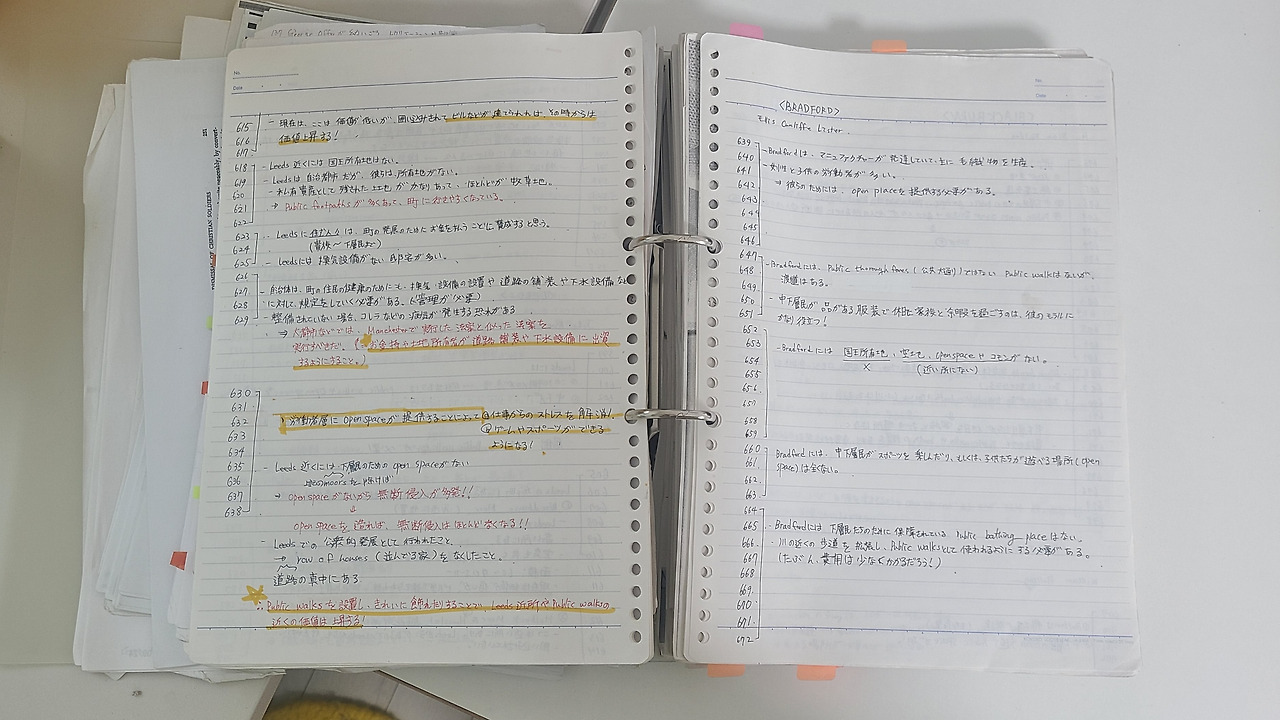 No.
Date
615
616
617
- 現在は、ここは価値が低いが、囲い込みされてビルなどが建てられれば、その時からは
価値上昇する!
618
619
620
621
- Leeds近くには国王所有地はない。
- Leedsは自治都市だが、彼らは所有地がない。
- 私有財産として残された土地がかなりあって、ほとんどが牧草地。
→ Public footpathsが多くあって、町に
623
624
625
- Leedsに住む人々は、町の発展のためにお金を払うことに賛成すると思う。
(貴族〜下層民まで)
- Leedsには換気設備がない邸宅が多い。
626
627
628
629
- 自治体は、町の住民の健康のために、換気設備の設置や道路の舗装や下水設備など
に対して規定をしていく必要がある。(管理が必要)
整備されていない場合、コレラなどの病気が発生する恐れがある
→ 大都市などでは、Manchesterで実行した法案と似った法案を
実行すべきだ。(
ようにすること。)
630
631
632
633
634
635
636
637
638
労働者層にopen spaceが提供することによって ①仕事からのストレスを解消!
②ゲームやスポーツができる
ようになる!
- Leeds近くには下層のためのopen spaceがない
のmoorsを除けば
→ open spaceがないから無断侵入が多発!!
↓
open spaceを造れば、無断侵入はほとんど無くなる!!
- Leedsでの公衆的発展として行われたこと、
→ row of houses (並んでる家)をなくしたこと。
道路の真中にある
☆ ∴ Public walksを設置し、きれいに飾れたりすることで、Leeds近所やPublic walksの
近くの価値は上昇する!
No.
Date
<BRADFORD>
Ellis Cunliffe Lister.
639
640
641
642
643
644
645
646
- Bradfordは、マニュファクチャーが発達していて、主に毛織物を生産。
- 女性と子供の労働者が多い。
→ 彼らのためには、open placeを提供する必要がある。
647
648
649
650
651
- Bradfordには、Public thoroughfares(公衆大通り)ではない Public walkはないが、
湿道はある。
- 中下層民が、品がある服装で休日に家族と余暇を過ごすのは、彼のモラルに
かなり役立つ!
652
653
654
655
656
657
658
659
- Bradfordには 国王所有地、空き地、open spaceやコモンがない。
×
(近い所にない)
660
661
662
663
Bradfordには、中下層民がスポーツを楽しんだり、もしくは、子供たちが遊べる場所(open
space)が全くない。
664
665
666
667
668
669
670
671
672
- Bradfordには下層民たちのために保障されている Public bathing placeはない。
- 川の近くの歩道を拡張し、Public walksとして使われるようにする必要がある。
(たぶん、費用は少なくかかるだろう!)